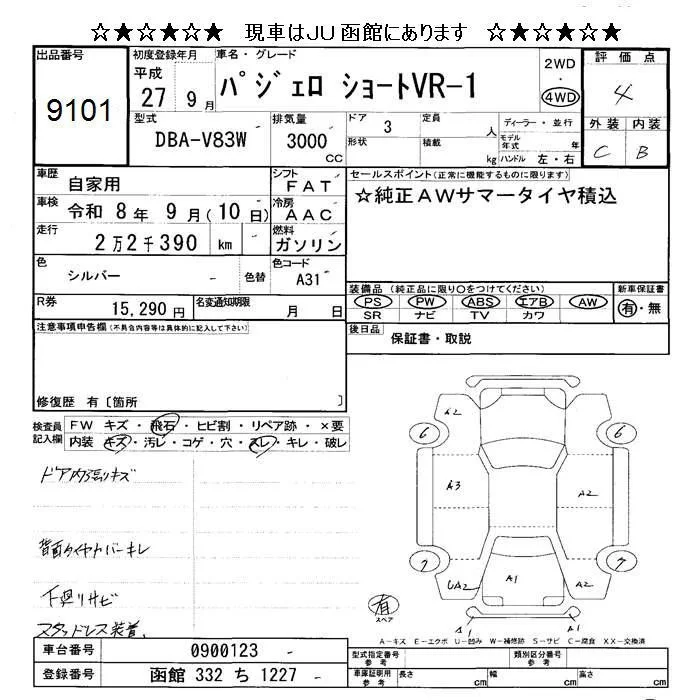 ☆★☆★☆★ 現車はJU函館にあります ☆★☆★☆★
出品番号
9101
初度登録年月
平成
27 9月
車名・グレード
パジェロ ショートVR-1
2WD
・
4WD
評価点
4
外装 内装
C B
型式
DBA-V83W
排気量
3000
CC
ドア
3
形状
定員
人
積載
kg
ディーラー・並行
モデル年式
年
ハンドル 左・右
車歴
自家用
シフト
FAT
車検
令和 8年 9月(10日)
冷房
AAC
走行
2万2千390 km
燃料
ガソリン
色
シルバー
-
色替
色コード
A31
R券
15,290円
名変通知期限
月 日
セールスポイント(正常に機能するものに限ります)
☆純正AWサマータイヤ積込
装備品(純正品に限り○をつけてください)
PS PW ABS エアB AW
SR ナビ TV カワ
新車保証書
有・無
後日品
保証書・取説
注意事項申告欄(不具合内容等は具体的に記入して下さい)
修復歴 有〔箇所 〕
検査員記入欄
FW キズ・飛石・ヒビ割・リペア跡・×要
内装 キズ・汚レ・コゲ・穴・スレ・キレ・破レ
ドア内張りキズ
背面タイヤカバーキレ
下廻りサビ
スタッドレス装着
A2
6 6
A3 A2
7 7
UA2 A1 A2
A1 A1
有
スペア
A-キズ E-エクボ U-凹み W-補修跡 S-サビ C-腐食 XX-交換済
車台番号
0900123
登録番号
函館 332 ち 1227
型式指定番号
参考
類別区分番号
参考
車庫証明用
参考
長さ
cm
幅
cm
高さ
cm